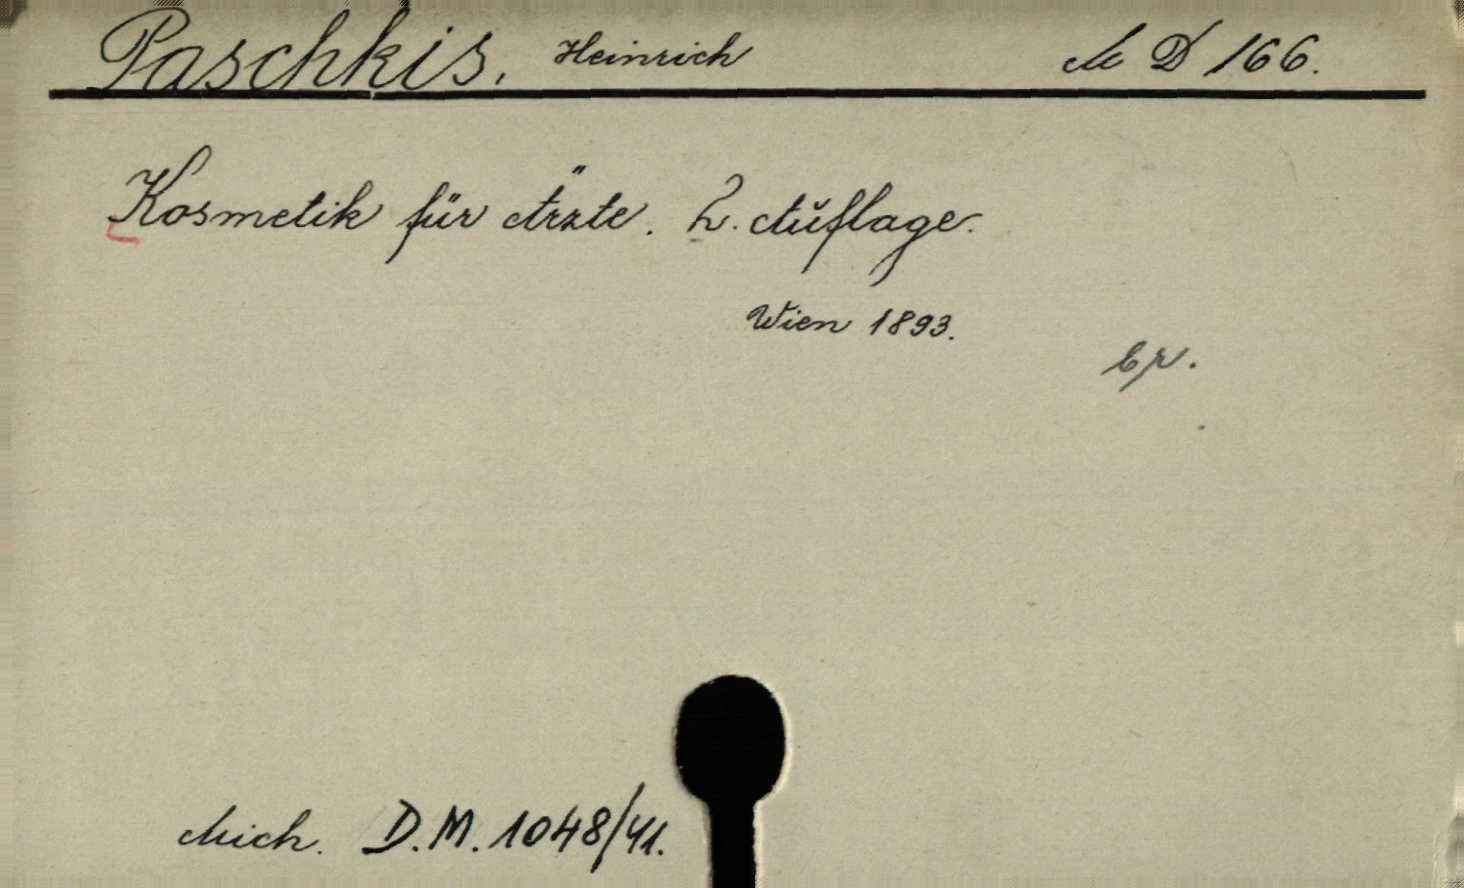 Paschkis, Heinrich M D 166.
Kosmetik für Ärzte. 2. Auflage.
Wien 1893.
Mich. D.M. 1048/41.